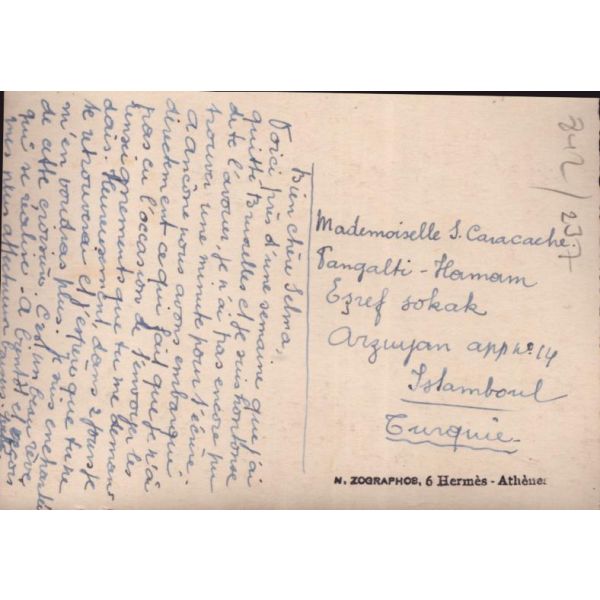 Bien chère Selma,
Voici près d'une semaine que j'ai
quitté Bruxelles et je suis honteuse
de te l'avouer, je n'ai pas encore pu
trouver une minute pour t'écrire.
à Ancône nous avons embarqué
directement ce qui fait que je n'ai
pas eu l'occasion de t'envoyer les
renseignements que tu me deman
dais. Heureusement, dans 2 jours je
te retrouverai et j'espère que tu ne
m'en voudras plus. Je suis enchantée
de cette croisière. C'est un beau rêve
qui se réalise. À bientôt et reçois
mes plus affectueux
Mademoiselle S. Caracache
Pangalti - Hamam
Esref sokak
Arzuyan app No. 14
Istamboul
Turquie
N. ZOGRAPHOS, 6 Hermès - Athènes
242/237